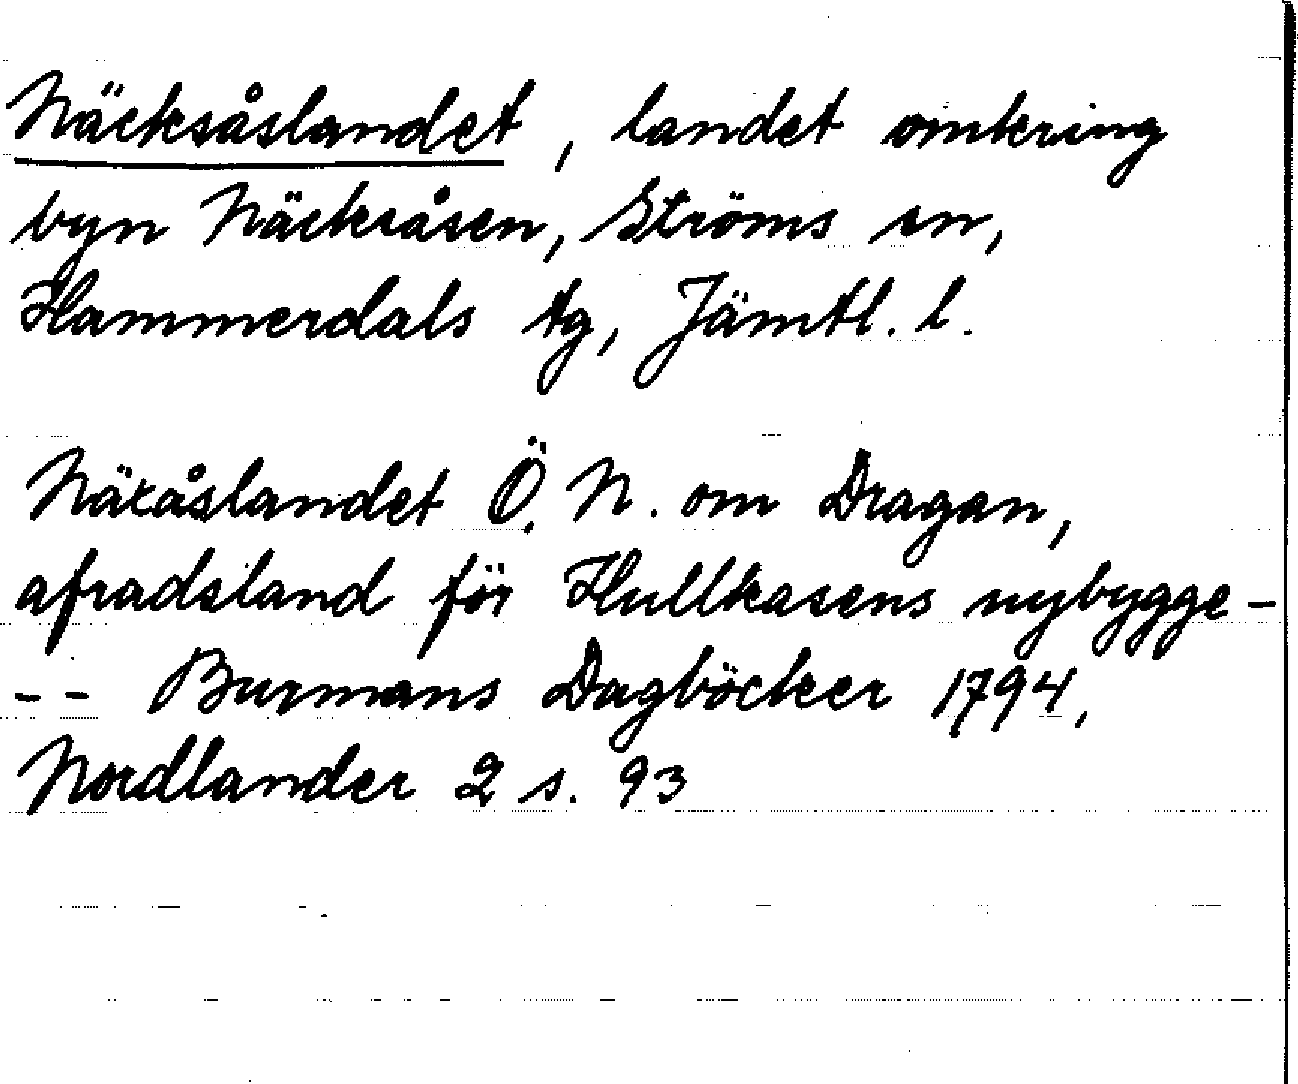 Näcksåslandet, landet omkring
byn Näcksåsen, Ströms sn,
Hammerdals tg, Jämtl. l.
Näxåslandet Ö. N. om Dragan,
afradsland för Hullkasens nybygge -
- - Burmans Dagböcker 1794,
Nordlander 2 s. 93